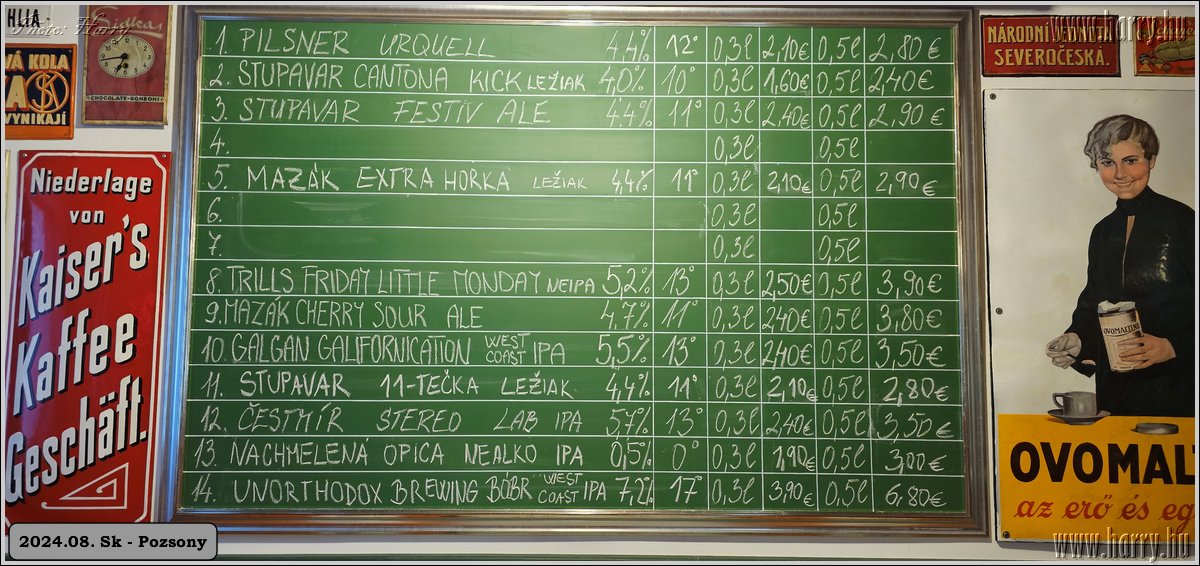 HLIA
Photo: Harry
Sidkas
CHOCOLATE-BONBONS
VÁ KOLA
VYNIKAJÍ
Niederlage
von
Kaiser's
Kaffee
Geschäft.
1. PILSNER URQUELL 4,4% 12° 0,3l 2,10€ 0,5l 2,80€
2. STUPAVAR CANTONA KICK LEŽIAK 4,0% 10° 0,3l 1,60€ 0,5l 2,40€
3. STUPAVAR FESTIV ALE 4,4% 11° 0,3l 2,40€ 0,5l 2,90€
4. 0,3l 0,5l
5. MAZÁK EXTRA HOŘKÁ LEŽIAK 4,4% 11° 0,3l 2,10€ 0,5l 2,90€
6. 0,3l 0,5l
7. 0,3l 0,5l
8. TRILLS FRIDAY LITTLE MONDAY NEIPA 5,2% 13° 0,3l 2,50€ 0,5l 3,90€
9. MAZÁK CHERRY SOUR ALE 4,7% 11° 0,3l 2,40€ 0,5l 3,80€
10. GALGAN GALIFORNICATION WEST COAST IPA 5,5% 13° 0,3l 2,40€ 0,5l 3,50€
11. STUPAVAR 11-TEČKA LEŽIAK 4,4% 11° 0,3l 2,10€ 0,5l 2,80€
12. ČESTMÍR STEREO LAB IPA 5,7% 13° 0,3l 2,40€ 0,5l 3,50€
13. NACHMELENÁ OPICA NEALKO IPA 0,5% 0° 0,3l 1,90€ 0,5l 3,00€
14. UNORTHODOX BREWING BOBR WEST COAST IPA 7,2% 17° 0,3l 3,90€ 0,5l 6,80€
www.harry.hu
NÁRODNÍ JEDNOTA
SEVEROČESKÁ.
OVOMALTINE
OVOMALT
az erő és eg
2024.08. Sk - Pozsony
www.harry.hu